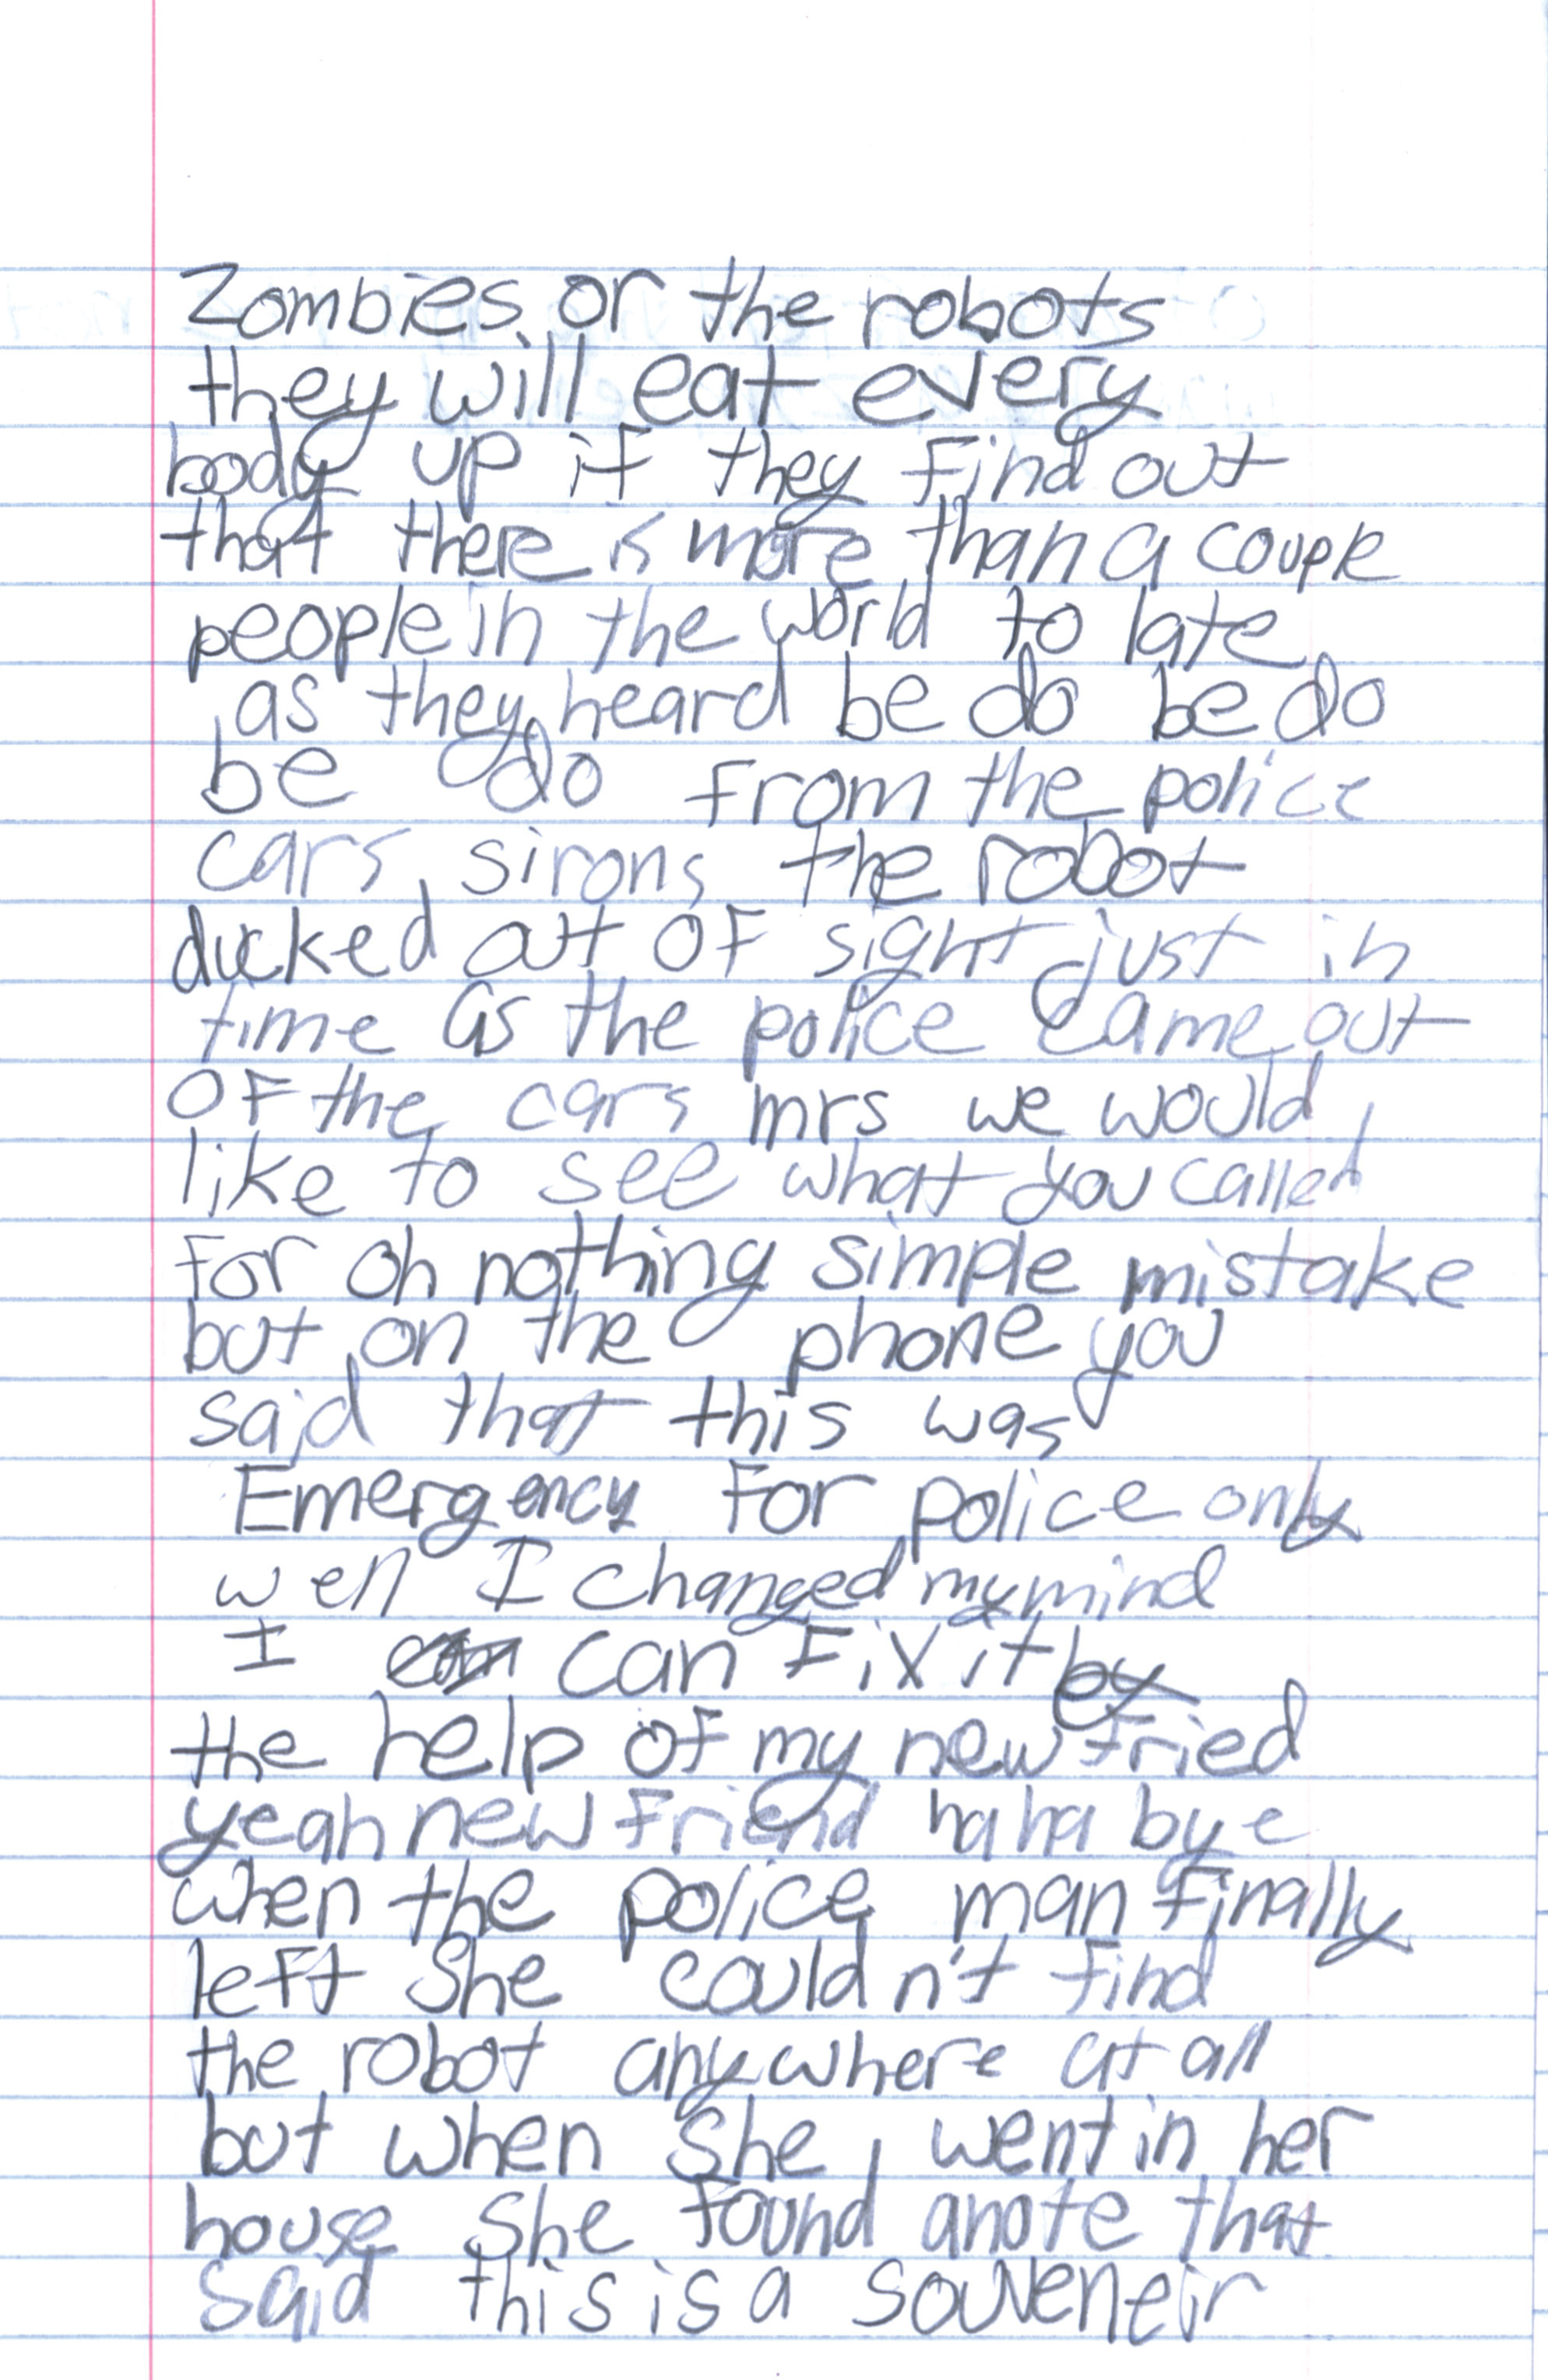 Zombies or the robots
they will eat every
body up if they find out
that there is more than a couple
people in the world to late
as they heard be do be do
be do from the police
cars sirons the robot
ducked out of sight just in
time as the police came out
of the cars mrs we would
like to see what you called
for oh nothing simple mistake
but on the phone you
said that this was
Emergency for police only
well I changed my mind
I can fix it by
the help of my new fried
yeah new friend haha bye
when the police man finally
left she couldn't find
the robot anywhere at all
but when she went in her
house she found a note that
said this is a souveneir